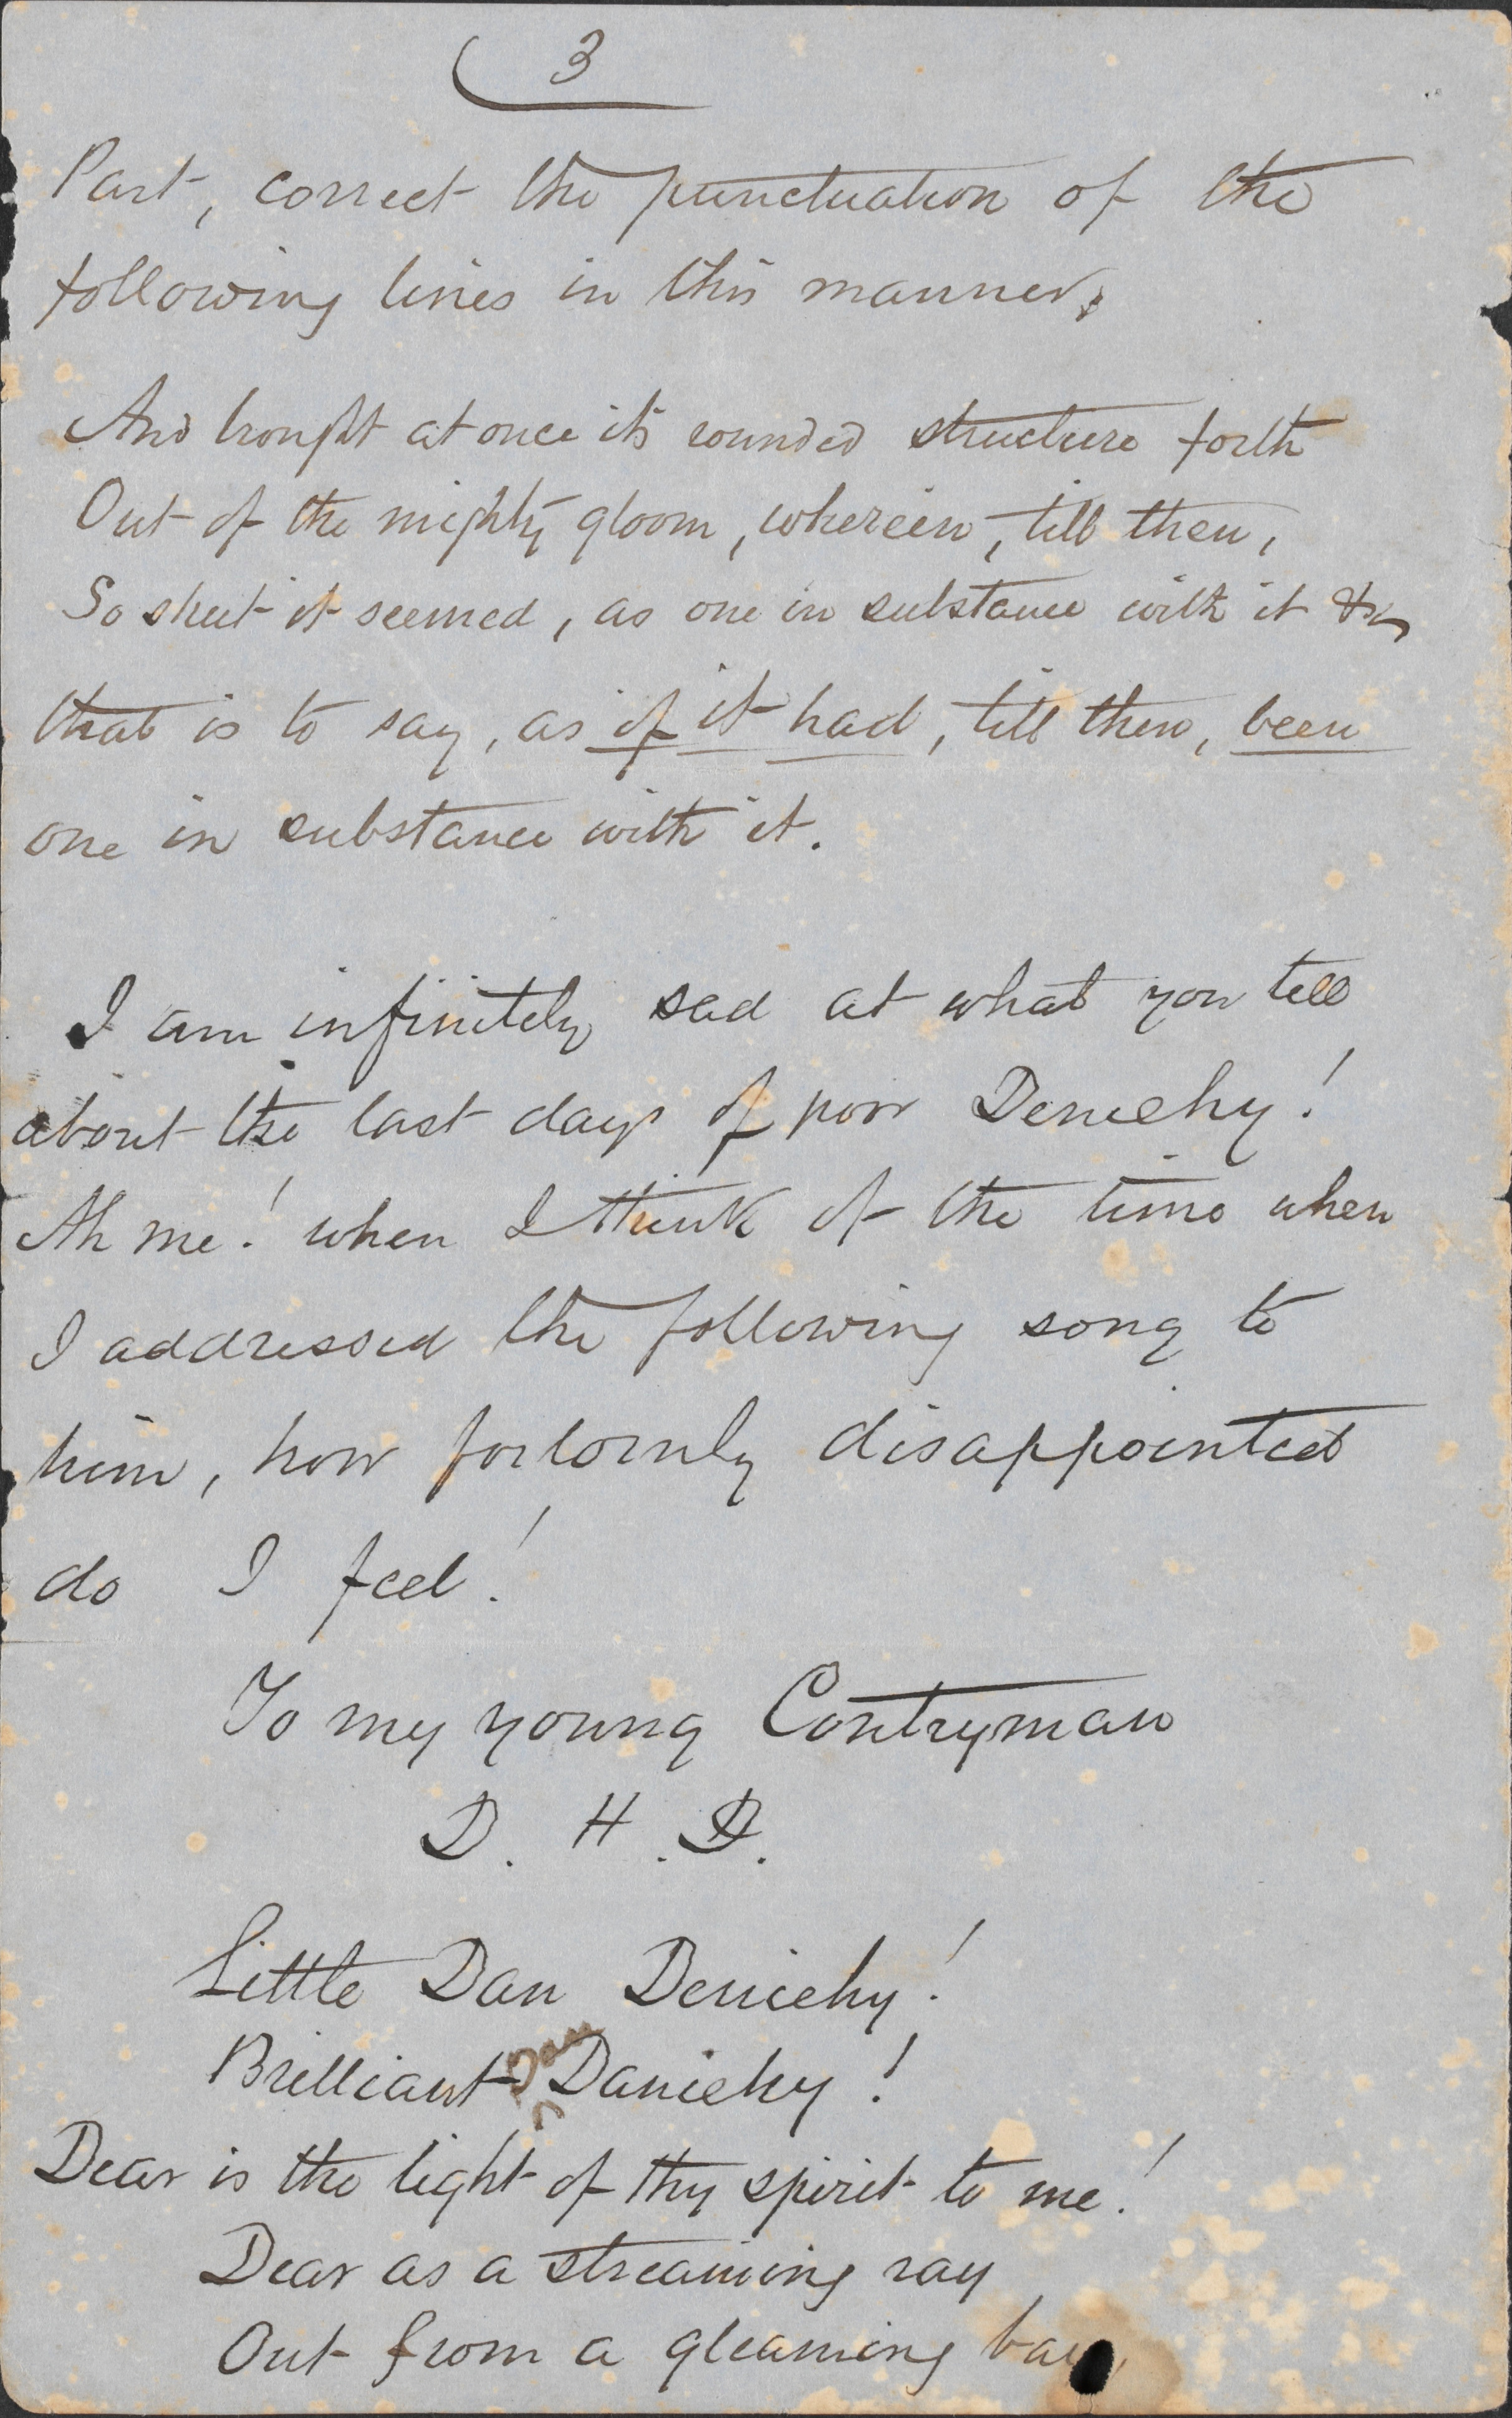 3
Part, correct the punctuation of the
following lines in this manner,
And brought at once its rounded structure forth
Out of the mighty gloom, wherein, till then,
So shut it seemed, as one in substance with it &c
that is to say, as if it had, till then, been
one in substance with it.
I am infinitely sad at what you tell
about the last days of poor Deniehy!
Ah me! when I think of the time when
I addressed the following song to
him, how forlornly disappointed
do I feel!
To my young Contryman
D. H. D.
Little Dan Deniehy!
Brilliant Dan Daniehy!
Dear is the light of thy spirit to me!
Dear as a streaming ray
Out from a gleaming bay,